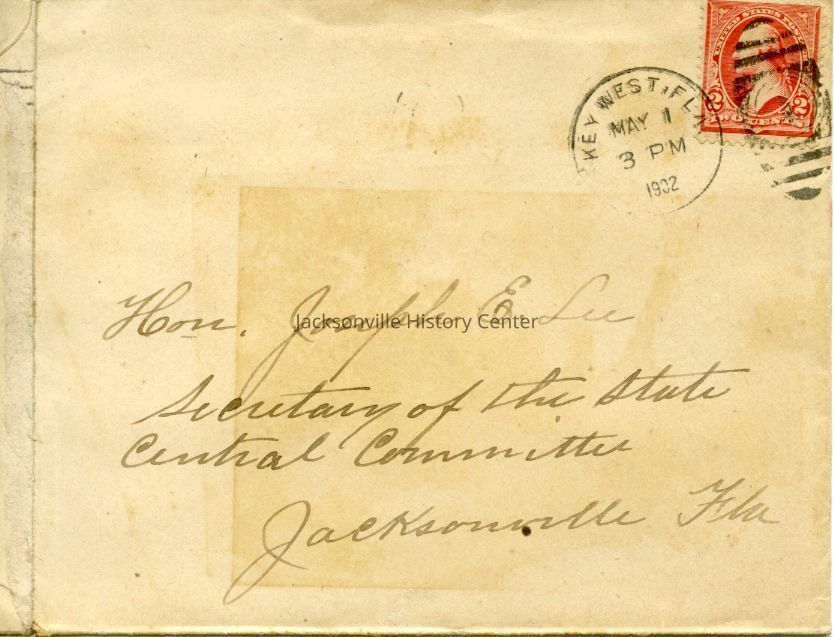 UNITED STATES POSTAGE
2 2
TWO CENTS
KEY WEST, FLA.
MAY 1
3 PM
1902
Hon. Joseph E. Lee
Jacksonville History Center
Secretary of the State
Central Committee
Jacksonville Fla